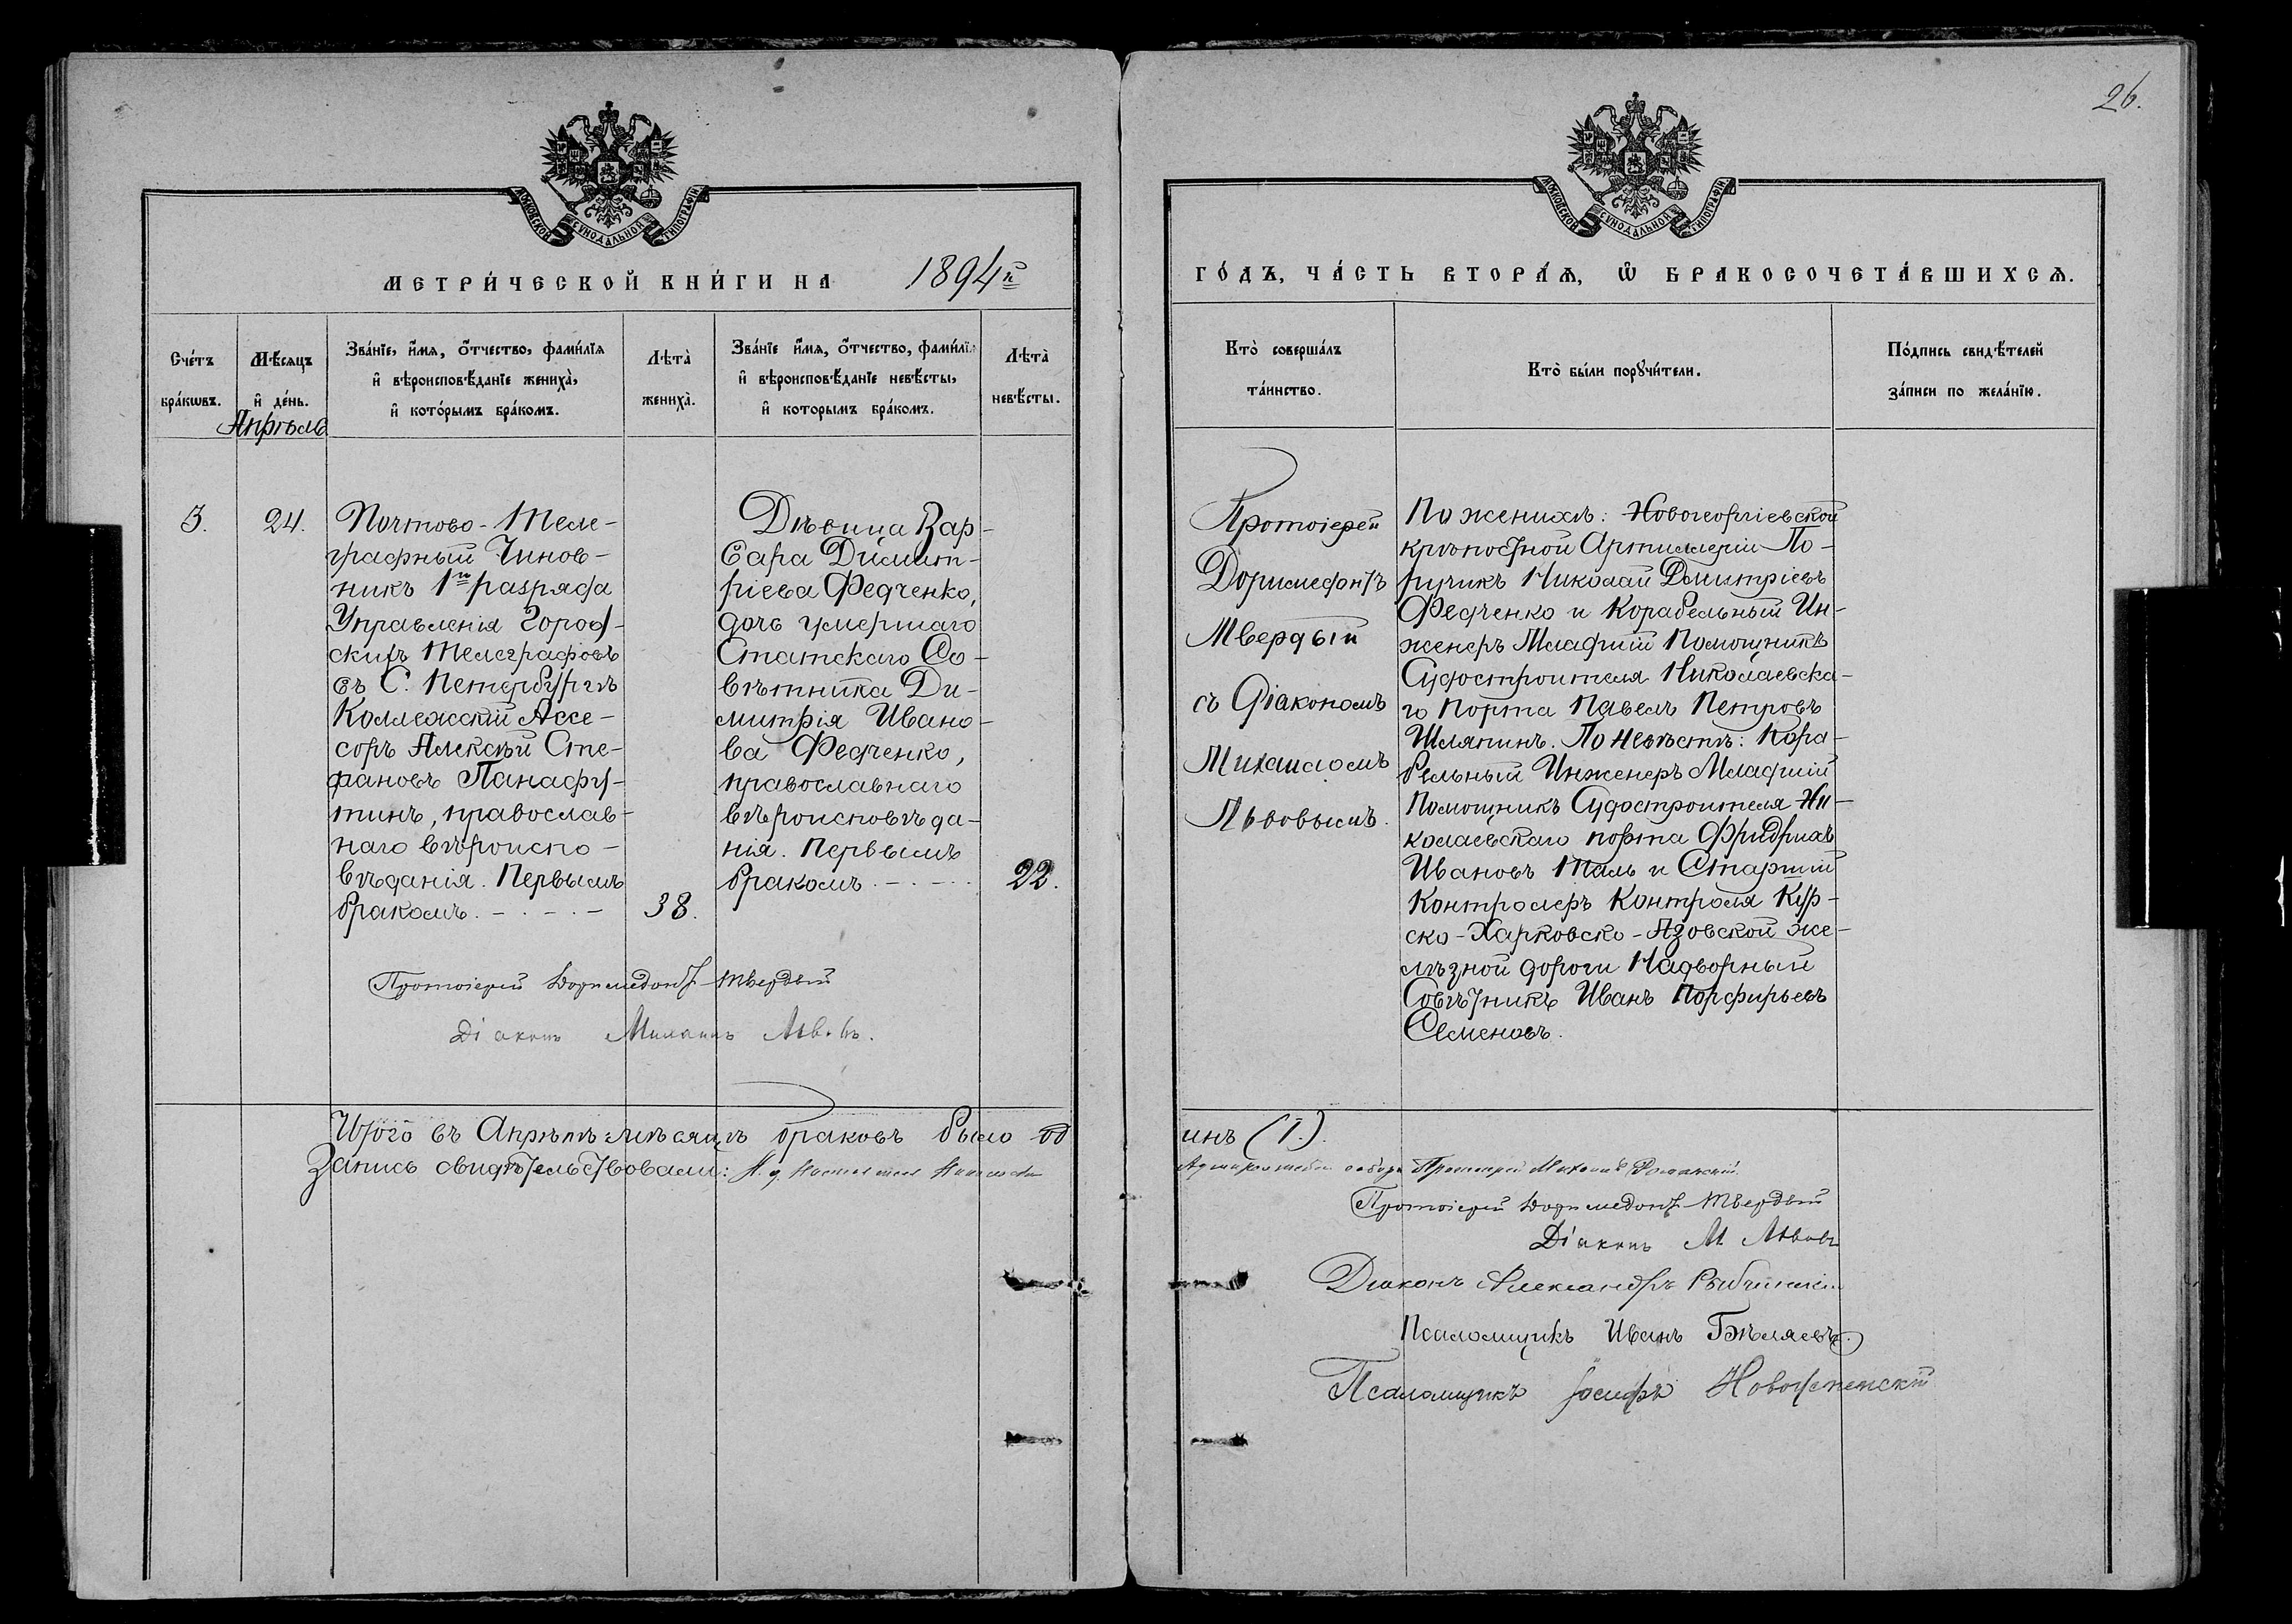 26.
МОСКОВСКОЙ СУНОДАЛЬНОЙ ТИПОГРАФІИ
МОСКОВСКОЙ СУНОДАЛЬНОЙ ТИПОГРАФІИ
МЕТРИ́ЧЕСКОЙ КНИ́ГИ НА 1894й
ГО́ДЪ, ЧА́СТЬ ВТОРА́Ѧ, Ѿ БРАКОСОЧЕТА́ВШИХСѦ.
Сче́тъ бра́кѡвъ.
Мѣ́сяцъ и҆ де́нь.
Апрѣль
Зва́нїе, и҆́мѧ, ѻ҆́тчество, фами́лїѧ
и҆ вѣроисповѣ́данїе жениха̀,
и҆ кото́рымъ бра́комъ.
Лѣта̀ жениха̀.
Зва́нїе и҆́мѧ, ѻ҆́тчество, фами́лїѧ
и҆ вѣроисповѣ́данїе невѣ́сты,
и҆ которымъ бра́комъ.
Лѣта̀ невѣ́сты.
Кто̀ соверша́лъ
та́инство.
Кто̀ бы́ли порꙋчи́тели.
По́дпись свидѣ́телей
за́писи по жела́нїю.
3.
24.
Почтово-Теле-
графный Чинов-
никъ 1го разряда
Управленія Город-
скихъ Телеграфовъ
въ С. Петербургѣ
Коллежскій Ассе-
соръ Алексѣй Сте-
фановъ Панафу-
тинъ, православ-
наго вѣроиспо-
вѣданія. Первымъ
бракомъ.
38.
Дѣвица Вар-
вара Димит-
ріева Федченко,
дочь умершаго
Статскаго Со-
вѣтника Ди-
митрія Ивано-
ва Федченко,
православнаго
вѣроисповѣда-
нія. Первымъ
бракомъ.
22.
Протоіерей Доримедонтъ Твердый
Діаконъ Михаилъ Львовъ.
Протоіерей
Доримедонтъ
Твердый
съ Діакономъ
Михаиломъ
Львовымъ.
По женихѣ: Новогеоргіевской
крѣпостной Артиллеріи По-
ручикъ Николай Димитріевъ
Федченко и Корабельный Ин-
женеръ Младшій Помощникъ
Судостроителя Николаевска-
го порта Павелъ Петровъ
Шляпинъ. По Невѣстѣ: Кора-
бельный Инженеръ Младшій
Помощникъ Судостроителя Ни-
колаевскаго порта Фридрихъ
Ивановъ Таль и Старшій
Контролеръ Контроля Кур-
ско-Харковско-Азовской же-
лѣзной дороги Надворный
Совѣтникъ Иванъ Порфирьевъ
Семеновъ.
Итого въ Апрѣлѣ мѣсяцѣ браковъ было од
инъ (1.).
Запись свидѣтельствовали: И. д. Настоятеля
собора Протоіерей Михаилъ
Протоіерей Доримедонтъ Твердый
Діаконъ М Львовъ
Діаконъ Александръ
Псаломщикъ Иванъ Бѣляевъ.
Псаломщикъ Іосифъ